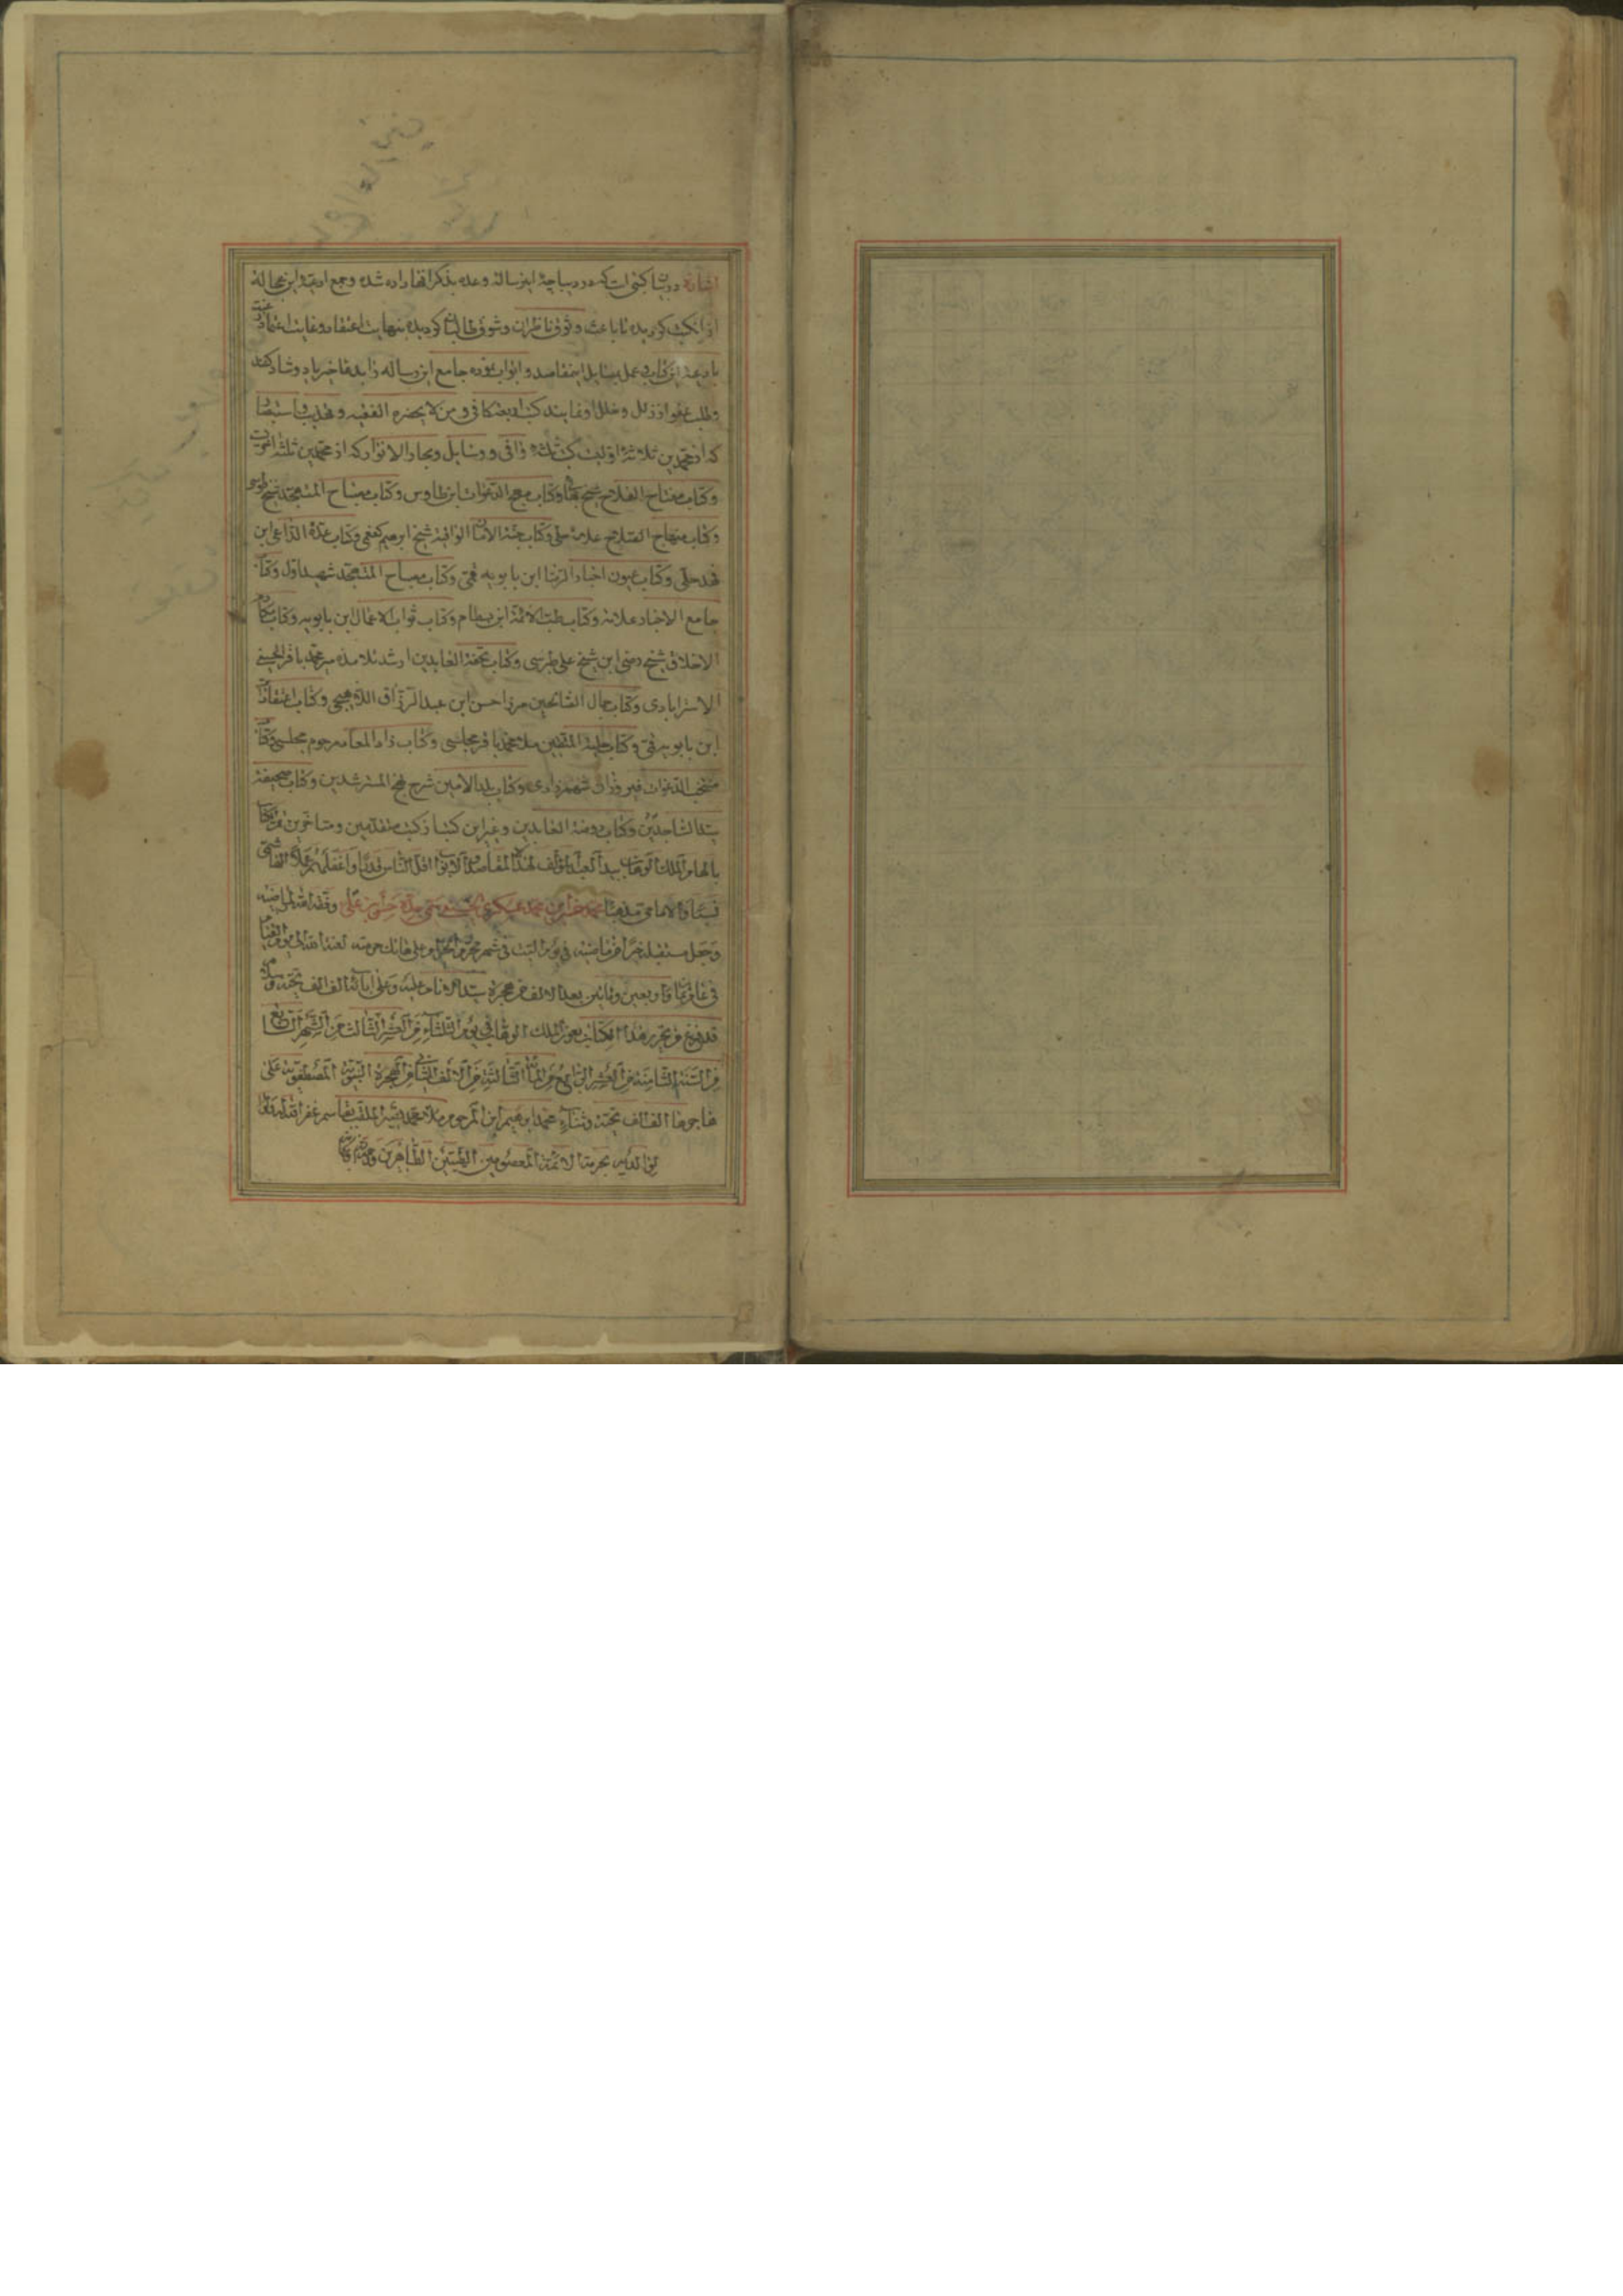 اشاره در بیان کتبی است که در دیباچهٔ این رساله وعده بذکر آنها داده شده و جمع ادعیهٔ این عجاله
از آن کتب کردیده تا باعث وثوق ناظران و شوق طالبان کردیده بنهایت اعتقاد و غایت اعتماد
بادعیهٔ این کتاب عمل بمسایل این مقاصد و ابواب نموده جامع این رساله را بدعای خیر یاد و شاد کنند
و طلب عفو از زلل و خلل او نمایند کتب اربعه کافی و من لا یحضره الفقیه و تهذیب و استبصار
که از محمدین ثلاثهٔ اول است کتب ثلثه وافی و وسایل و بحار الانوار که از محمدین ثلثهٔ
و کتاب مفتاح الفلاح شیخ بهائی و کتاب مهج الدعوات ابن طاوس و کتاب مصباح المتهجد شیخ طوسی
و کتاب منهاج الصلاح علامه حلی و کتاب جنة الامان الواقیة شیخ ابرهیم کفعمی و کتاب عدة الداعی ابن
فهد حلی و کتاب عیون اخبار الرضا ابن بابویه قمی و کتاب مصباح المتهجد شهید اول و کتاب
جامع الاخبار علامه و کتاب طب الائمة ابن بسطام و کتاب ثواب الاعمال ابن بابویه و کتاب مکارم
الاخلاق شیخ رضی ابن شیخ علی طبرسی و کتاب تحفة العابدین ارشد تلامذه میر محمد باقر الحسینی
الاسترابادی و کتاب جمال الصالحین میرزا حسن ابن عبد الرزاق اللاهیجی و کتاب اعتقادات
ابن بابویه قمی و کتاب حلیة المتقین ملا محمد باقر مجلسی و کتاب زاد المعاد مرحوم مجلسی و کتاب
منتخب الدعوات و کتاب بلد الامین شرح نهج المسترشدین و کتاب صحیفهٔ
سید الساجدین و کتاب روضة العابدین و غیر این کتب از کتب متقدمین و متاخرین
بالهام الملک الوهاب بید العبد مؤلف هذا المقاصد و الابواب اقل الناس قدرا و اعظمهم
نسبا و الامامی مذهبا محمد ابن محمد عسکری الحسینی وفقه الله لمراضیه
و جعل مستقبله خیرا من ماضیه فی یوم السبت فی شهر محرم الحرام و علی هاتک حرمته لعنة الله الی یوم القیام
فی عام و اربعین و بعد الالف من هجرة سید الانام علیه و علی آبائه الف الف تحیة و سلام
قد فرغ من تحریر هذا الکتاب بعون الملک الوهاب فی یوم الثلثاء من العشر الثالث من الشهر الرابع
من السنة الثامنة من العشر الرابع من المائة الثالثة من الالف الثانی من الهجرة النبویة المصطفویة علی
هاجرها الف الف تحیة و ثناء محمد ابرهیم ابن المرحوم ملا محمد الملقب بقاسم غفر الله له
لوالدیه بحرمة الائمة المعصومین الطیبین الطاهرین